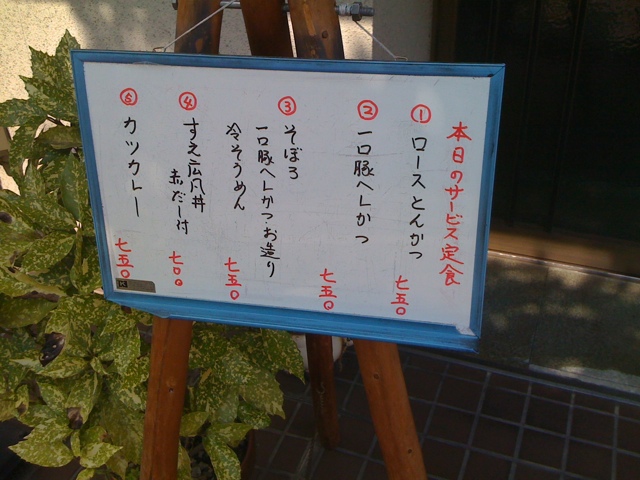 本日のサービス定食
① ロースとんかつ 七五〇
② 一口豚ヘレかつ 七五〇
③ そぼろ
一口豚ヘレかつお造り
冷そうめん 七五〇
④ すえ広丼
赤だし付 七〇〇
⑤ カツカレー 七五〇